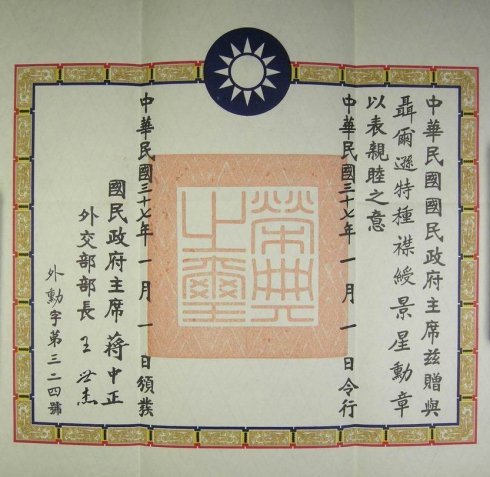 中華民國國民政府主席茲贈與
聶爾遜特種襟綬景星勳章
以表親睦之意
中華民國三十七年一月一日令行
榮典之璽
中華民國三十七年一月一日頒發
國民政府主席蔣中正
外交部部長王世杰
外勳字第三二四號